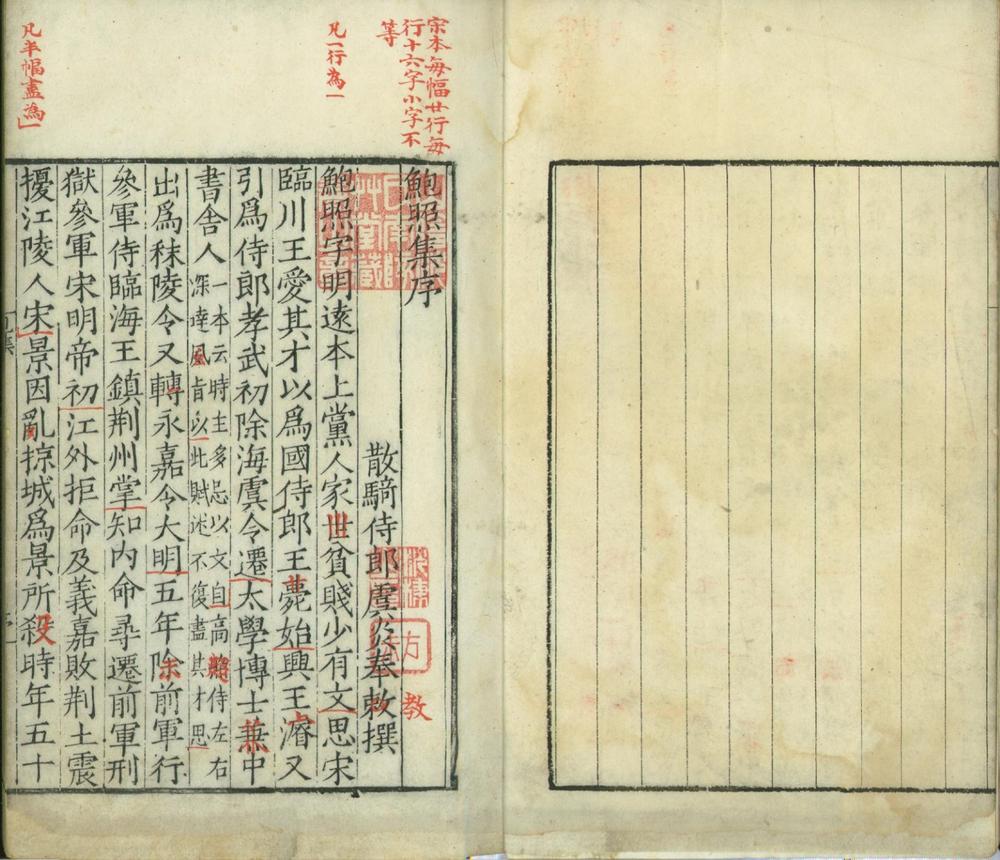 宋本每幅廿行每
行十六字小字不
等
凡一行為一
凡半幅盡為一
鮑照集序
散騎侍郎虞炎奉敕撰
教
鮑照字明遠本上黨人家世貧賤少有文思宋
臨川王愛其才以爲國侍郎王薨始興王濬又
引爲侍郎孝武初除海虞令遷太學博士兼中
書舍人
一本云時主多忌以文自高
侍左右
深達風旨以此賦述不復盡其才思
出爲秣陵令又轉永嘉令大明五年除前軍行
參軍侍臨海王鎮荆州掌知内命尋遷前軍刑
獄參軍宋明帝初江外拒命及義嘉敗荆土震
擾江陵人宋景因亂掠城爲景所殺時年五十